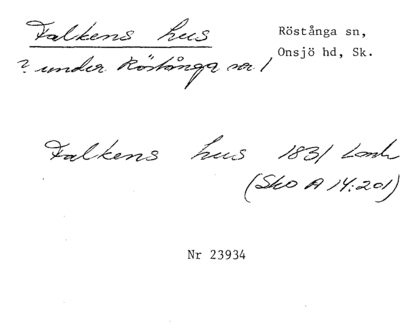 Falkens hus
Röstånga sn,
Onsjö hd, Sk.
? under Röstånga nr 1
Falkens hus 1831 Lantm
(Sko A 14:201)
Nr 23934